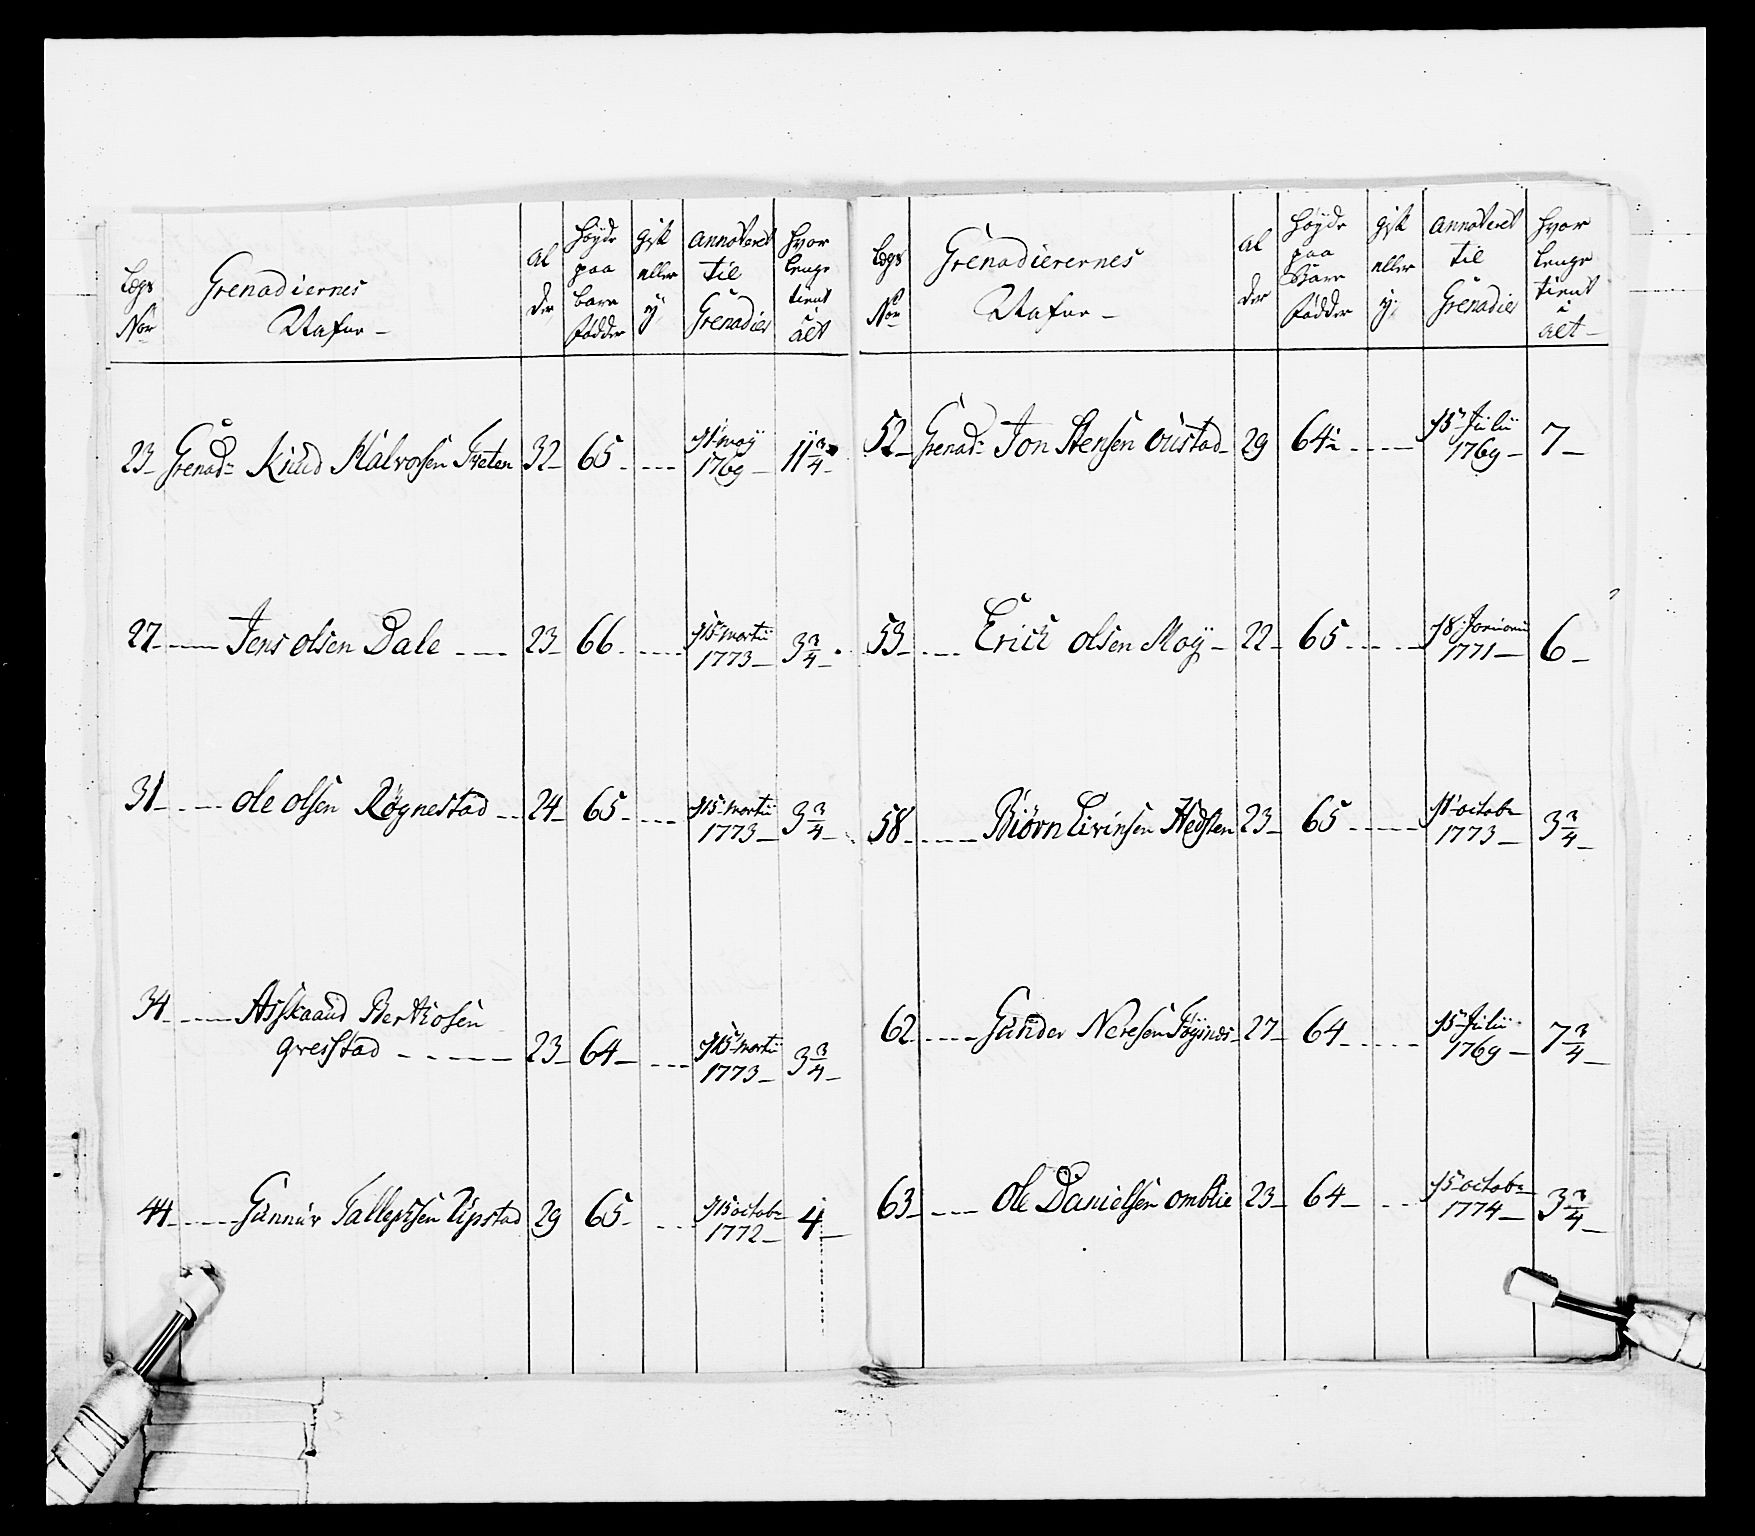 Legs
Nor
Grenadiernes
Nafne –
Al
der
Høyde
paa
bare
fødder
gift
eller
ey
annoteret
til
Grenadier
hvor
lenge
tient
i
alt
23 Grenad: Knud Halvorsen Treten 32 65 d 1 may
1769 11 3/4
27 Jens olsen Dale 23 66 d 15 martii
1773 3 3/4
31 ole olsen Røgnestad 24 65 d 15 martii
1773 3 3/4
34 Asskaaud
Greßtad 23 64 d 15 martii
1773 3 3/4
44 Gunnur Tallefsen Upstad 29 65 d 15 octobr
1772 4
Legs
Nor
Grenadierernes
Nafne –
Al
der
Høyde
paa
Bare
fødder
gift
eller
ey
annoteret
til
Grenadier
hvor
lenge
tient
i
alt
52 Grenad: Jon Stensen oustad 29 64 d 15 Julii
1769 7
53 Erick olsen Moy 22 65 d 8 Janiuarii
1771 6
58 Biørn Eivinsen 23 65 d 1 octobr
1773 3 3/4
62 Gunder Neresen 27 64 d 15 Julii
1769 7 3/4
63 Ole Danielsen omblie 23 64 d 15 octobr
1774 3 3/4